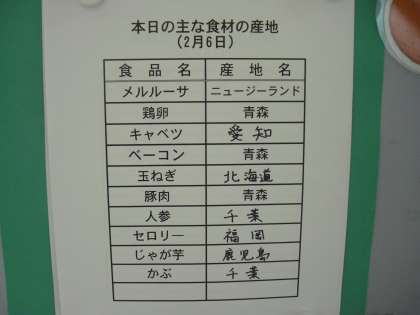 本日の主な食材の産地
(2月6日)
食品名 産地名
メルルーサ ニュージーランド
鶏卵 青森
キャベツ 愛知
ベーコン 青森
玉ねぎ 北海道
豚肉 青森
人参 千葉
セロリー 福岡
じゃが芋 鹿児島
かぶ 千葉